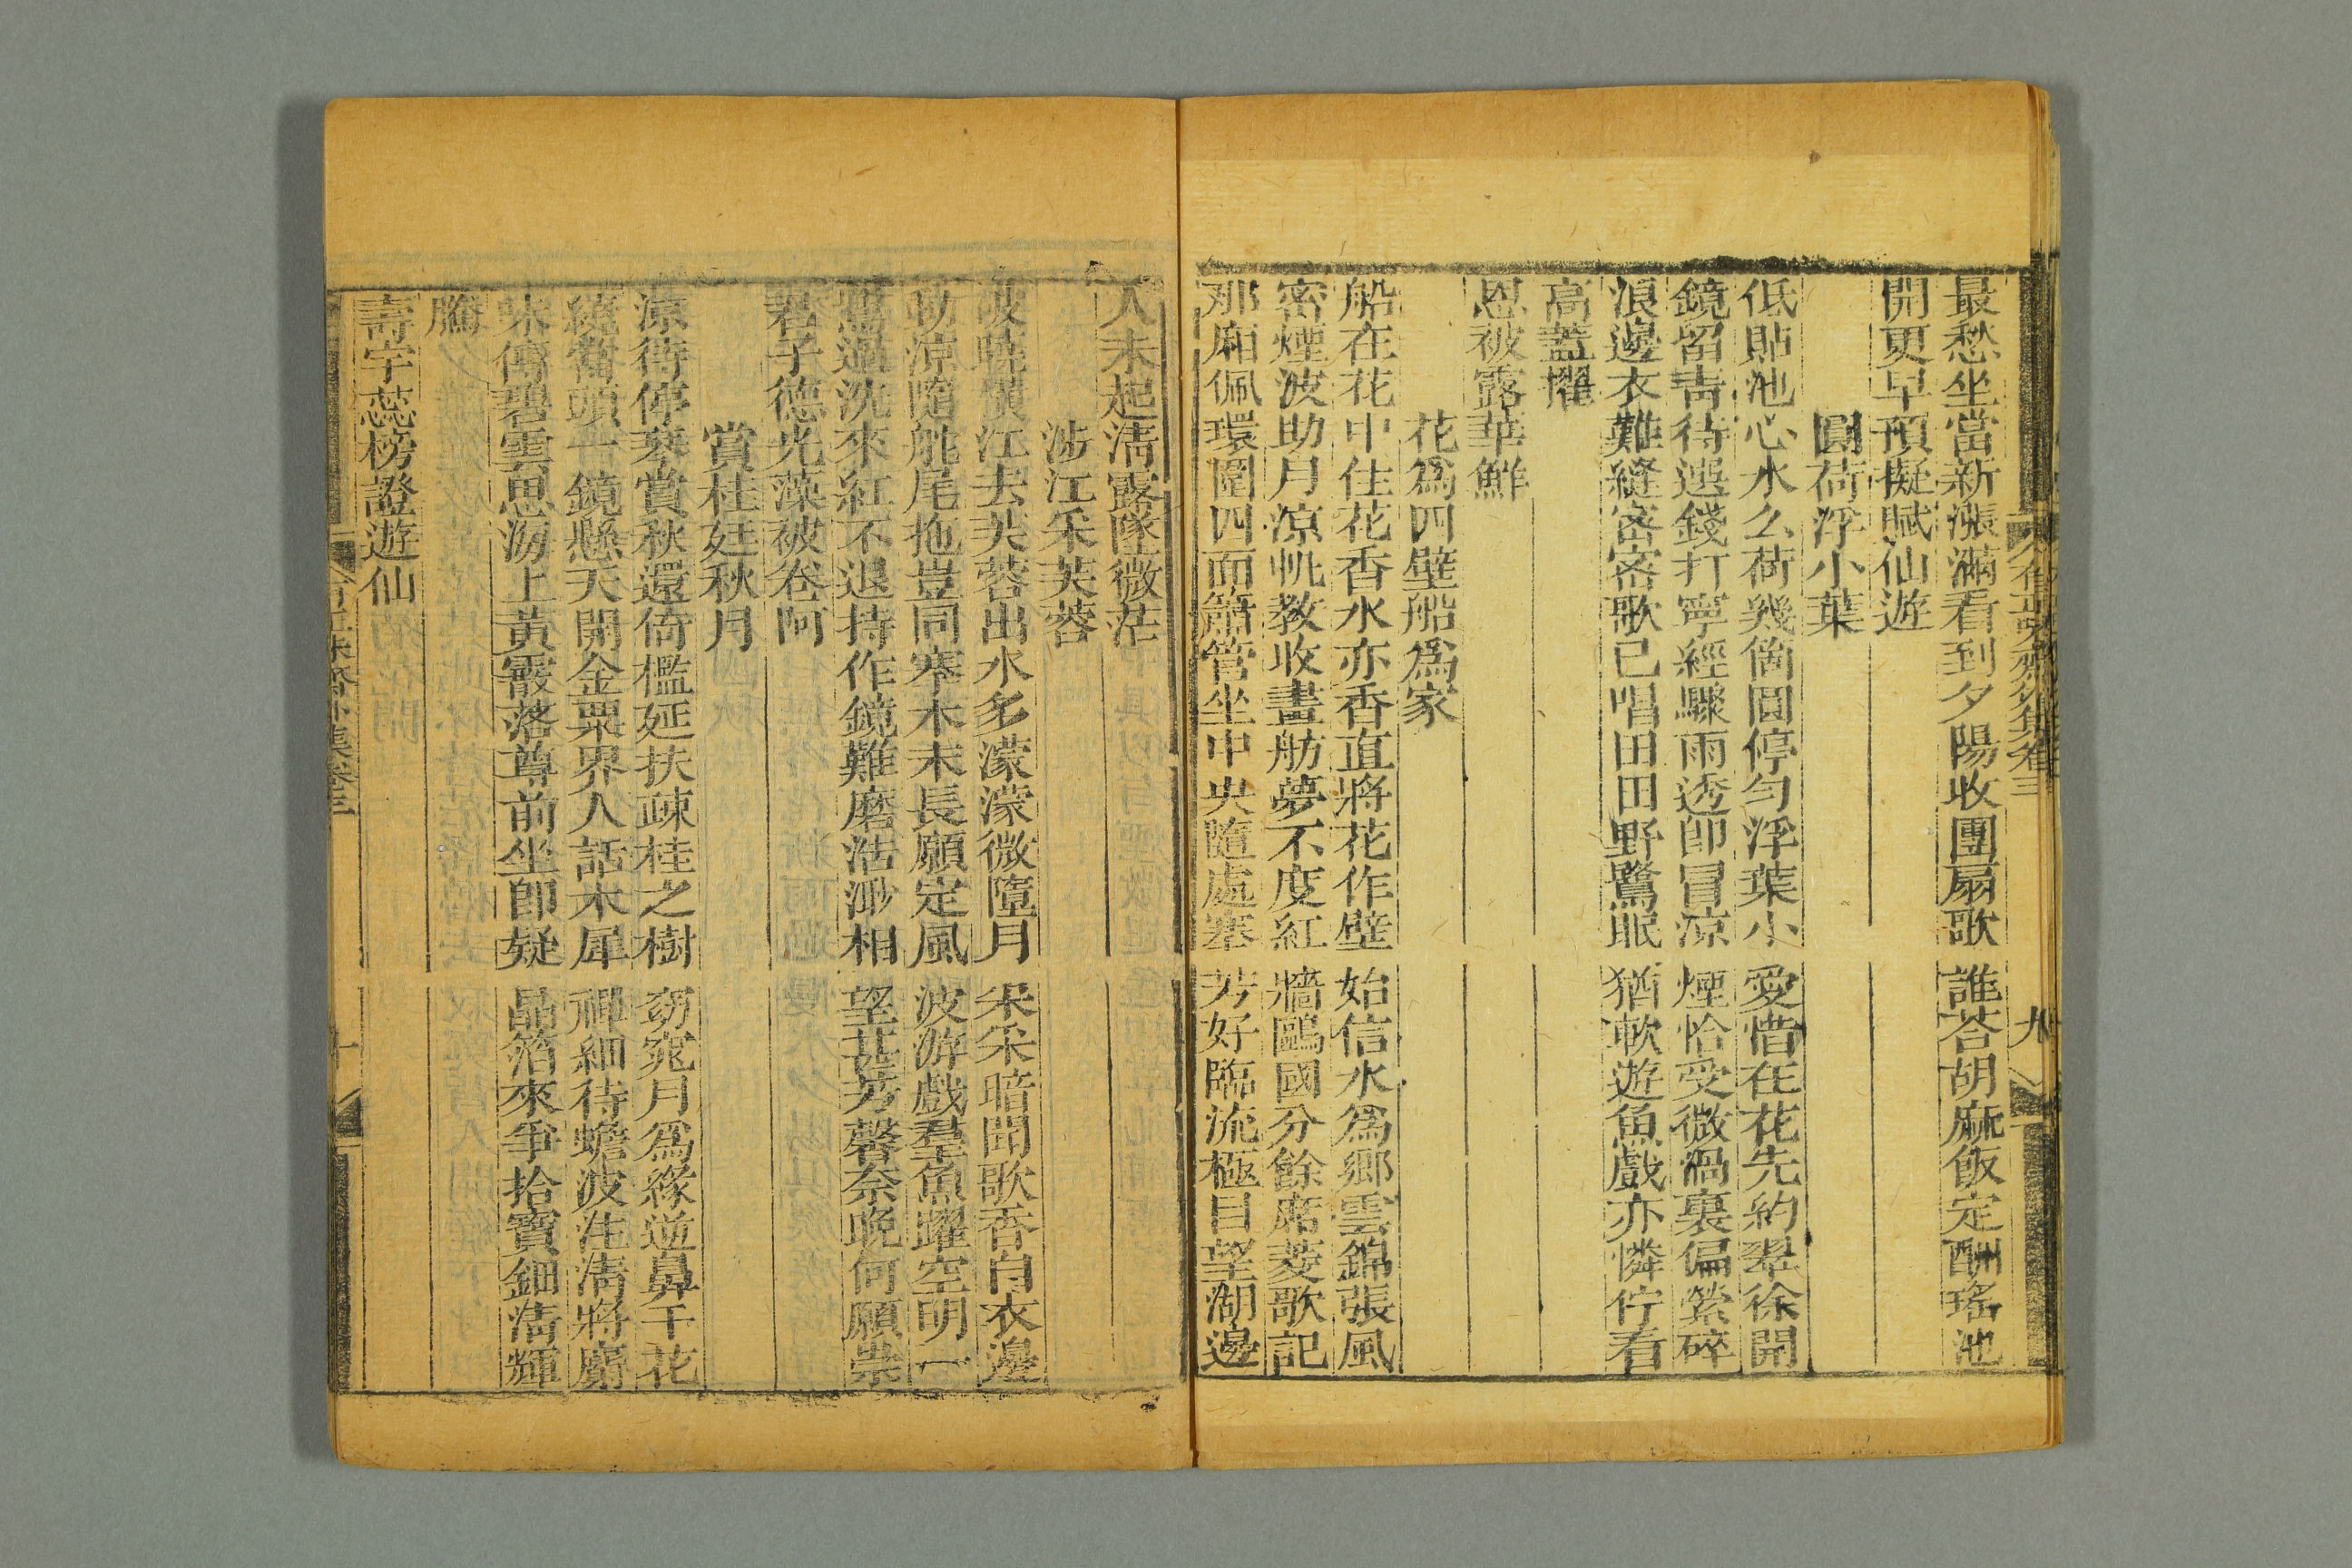 最愁坐當新漲滿看到夕陽收團扇歌 誰荅胡麻飯定酬瑤池
開更早預擬賦仙遊
圓荷浮小葉
低貼池心水么荷幾箇圓停勻浮葉小 愛惜在花先約翠徐開
鏡留靑待選錢打寧經驟雨透卽冒涼 煙恰受微渦裏偏縈碎
浪邊衣難縫密密歌已唱田田野鷺眠 猶軟遊魚戲亦憐佇看
高蓋擢
恩被露華鮮
花爲四壁船爲家
船在花中住花香水亦香直將花作壁 始信水爲鄉雲錦張風
密煙波助月凉帆教收畫舫夢不度紅 牆鷗國分餘席菱歌記
那廂佩環圍四面簫管坐中央隨處塞 芳好臨流極目望湖邊
人未起淸露墜微茫
涉江采芙蓉
江去芙蓉出水多濛濛微墮月 采采暗聞歌香自衣邊
凉隨舵尾拖豈同搴木末長願定風 波游戲羣魚躍空明一
過洗來紅不退持作鏡難磨沽渺相 望芷芳馨奈晚何願崇
君子德光藻被卷阿
賞桂廷秋月
凉待停琴賞秋還倚檻延扶疎桂之樹 窈窕月爲緣逆鼻千花
繞當頭一鏡懸天開金粟界人話木犀 禪細待蟾波注淸將麝
味傳碧雲思潞上黃霰落尊前坐卽疑 晶箔來爭拾寶鈿淸輝
騰
壽宇蕊榜證遊仙